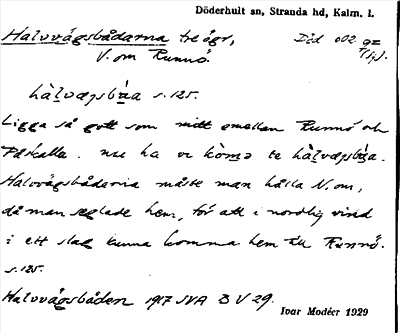 Döderhult sn, Stranda hd, Kalm. l.
Halvvägsbådarna tre ögr,
V. om Runnö.
hàl̬vægsbɑ̊̀a s. 125.
Ligga så gott som mitt emellan Runnö och
Påskalla. nu ha vi kòmə te hàl̬vægsbɑ̊̀a.
Halvvägsbådarna måste man hålla N. om,
då man seglade hem, för att i nordlig vind
i ett slag kunna komma hem till Runnö.
s. 125.
Halvvägsbåden 1917 SVA B V 29.
Ivar Modéer 1929